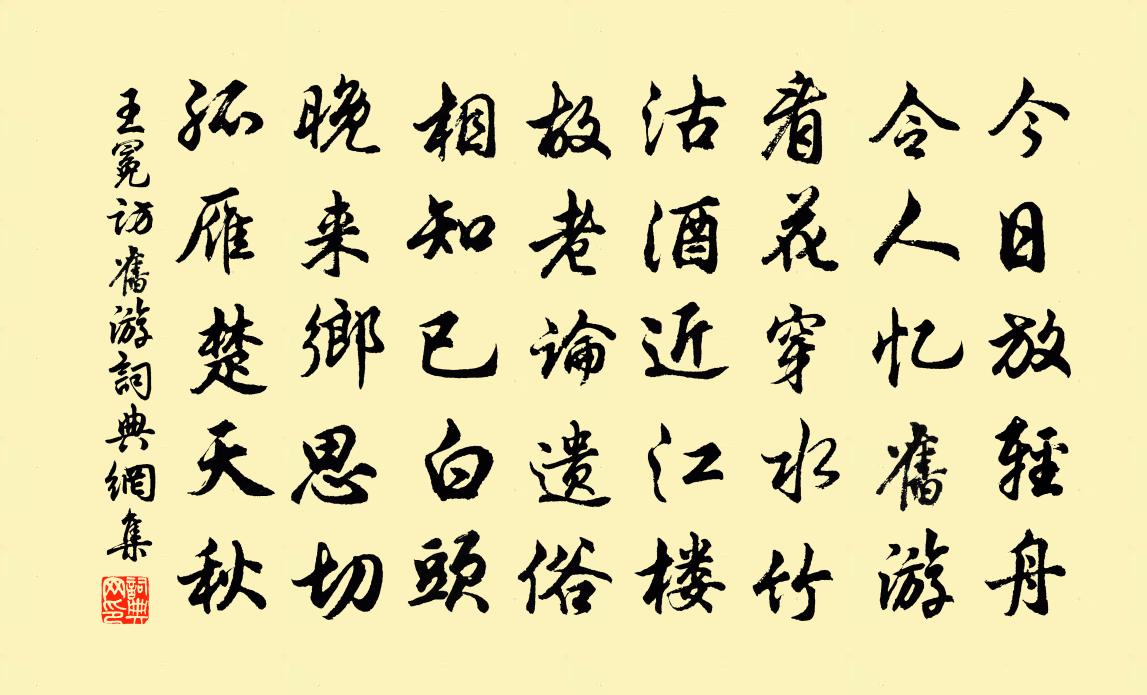 今日放輕舟
令人忆舊游
看花穿水竹
沽酒近江楼
故老論遗俗
相知已白頭
晚来鄉思切
孤雁楚天秋
王冕访舊游詞典網集
詞典网印